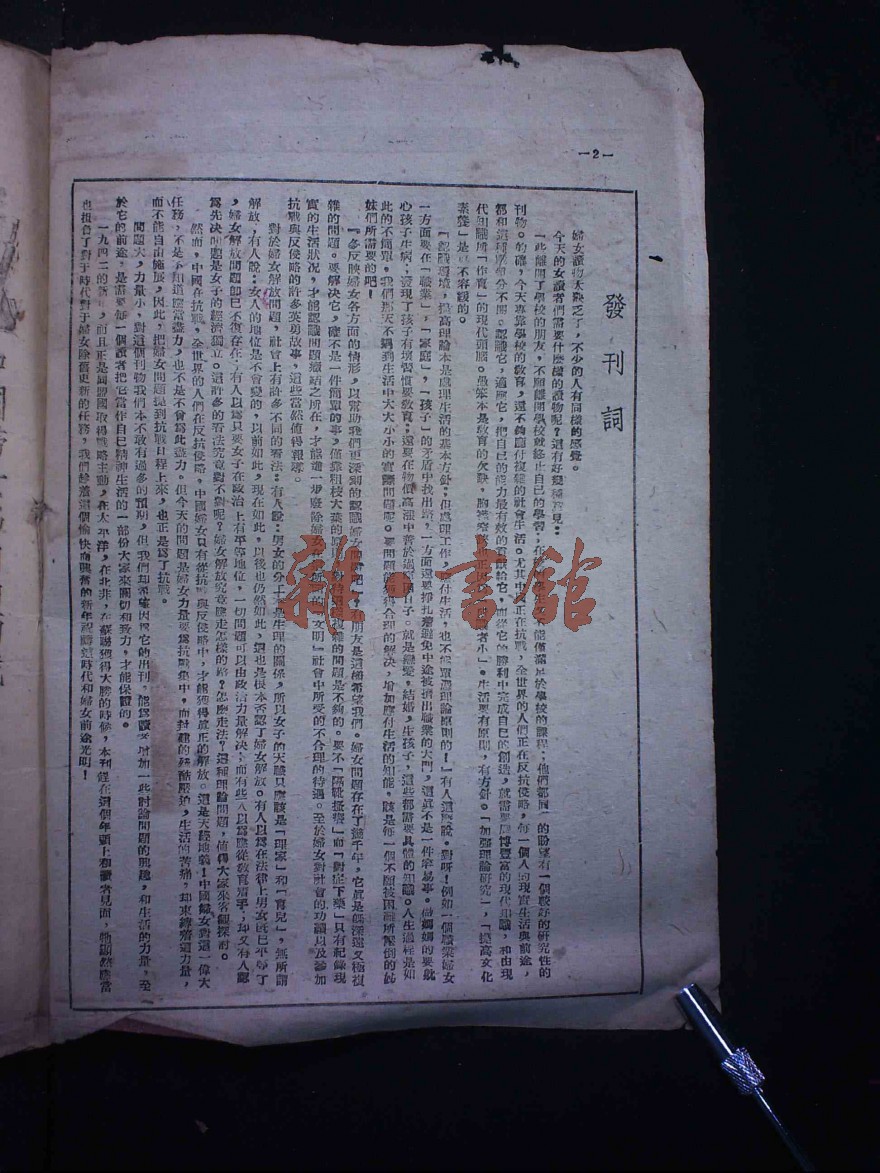 —2—
發刊詞
婦女讀物太缺乏了，不少的人有同樣的感覺。
今天的女讀者們需要什麼樣的讀物呢？還有好幾種意見：
「一些離開了學校的朋友，不願離開學校就終止自己的學習；在　　能僅　於學校的課程；他們都同一的盼望有一個較好的研究性的
刊物。的確，今天專靠學校的教育，還不夠應付複雜的社會生活。尤其中國正在抗戰，全世界的人們正在反抗侵略，每一個人的現實生活與前途，
都和這種　　分不開。認識它，適應它，把自己的能力最有效的貢獻給它，而從它的勝利中完成自己的創造，就需要廣博豐富的現代知識，和由現
代知識所「作育」的現代頭腦。愚笨本是教育的欠缺，胸襟窄　　正因　　者小」。生活要有原則，有方針。「加強理論研究」，「提高文化
素養」是　不容緩的。
「認識環境，提高理論本是處理生活的基本方針；但處理工作，應付生活，也不能單靠理論原則的！」有人這麼說。對呀！例如一個職業婦女
一方面要在「職業」，「家庭」，「孩子」的矛盾中找出路，一方面還要掙扎着避免中途被擠出職業的大門，這眞不是一件容易事。做媽媽的要就
心孩子生病；發現了孩子有壞習慣要教育；還要在物價高漲中善於過　日子。就是戀愛，結婚，生孩子，這些都需要具體的知識。人生過程是如
此的不簡單，我們那天不遇到生活中大大小小的實際問題呢。要問題能得到合理的解決，增加應付生活的知能，該是每一個不願被困難所嚇倒的姊
妹們所需要的吧！
「多反映婦女各方面的情形，以幫助我們更深到的認識婦女問題吧！」有朋友是這樣希望我們。婦女問題存在了幾千年，它眞是個深邃又極複
雜的問題。要解決它，確不是一件簡單的事，僅靠粗枝大葉的原則　對待這複雜的問題是不夠的。要不「隔靴搔癢」而「對症下藥」只有紀錄現
實的生活狀況，才能認識問題癥結之所在，才能進一步廢除婦女在所謂的「文明」社會中所受的不合理的待遇。至於婦女對社會的功績以及參加
抗戰與反侵略的許多英勇故事，這些當然值得報導。
對於婦女解放問題，社會上有許多不同的看法：有人說：男女的分工本是生理的關係，所以女子的天職只應該是「理家」和「育兒」，無所謂
解放，有人說：女人的地位是不會變的，以前如此，現在如此，以後也仍然如此，這也是根本否認了婦女解放。有人以爲在法律上男女既已平等了
，婦女解放問題即已不復存在；有人以爲只要女子在政治上有平等地位，一切問題可以由政治力量解決；而有些人以爲應從教育着手，却又有人認
爲先決問題是女子的經濟獨立。這許多的看法究竟對不對呢？婦女解放究竟應走怎樣的路？怎麼走法？這種理論問題，值得大家來客觀探討。
然而，中國在抗戰，全世界的人們在反抗侵略，中國婦女只有從抗戰與反侵略中，才能獲得眞正的解放。這是天經地義！中國婦女對這一偉大
任務，不是不知道應當盡力，也不是不曾爲此盡力。但今天的問題是婦女力量要爲抗戰集中，而封建的殘酷壓迫，生活的苦痛，却束縛着這力量，
而不能自由施展，因此，把婦女問題提到抗戰日程上來，也正是爲了抗戰。
問題大，力量小，對這個刊物我們本不敢有過多的預期，但我們却希望因爲它的出刊，能爲讀者增加一些討論問題的興趣，和生活的力量，至
於它的前途，是需要每一個讀者把它當作自己精神生活的一部份大家來關切和致力，才能保證的。
一九四三的新年，而且正是同盟國取得戰略主動，在太平洋，在北非，在蘇聯獲得大勝的時候，本刊趕在這個年頭上和讀者見面，牠毅然應當
也担負了對于時代對于婦女除舊更新的任務，我們趁着這個愉快而興奮的新年祝禱這時代和婦女前途光明！
雜·書館